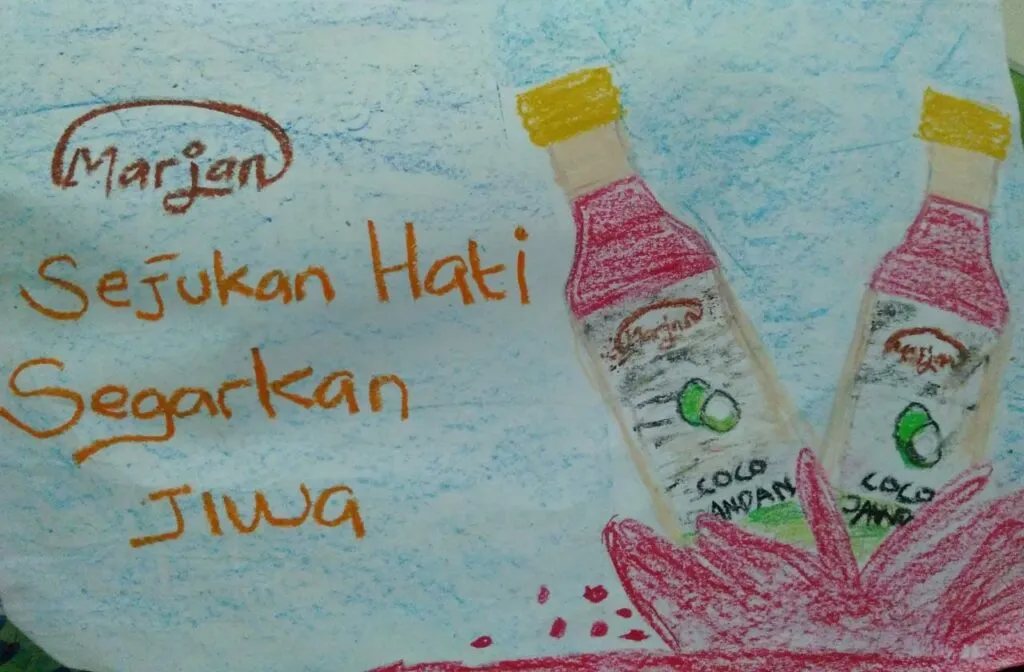 Marjan
Sejukan Hati
Segarkan
JIWa
Marjan
COCO
ANDAN
Marjan
COCO